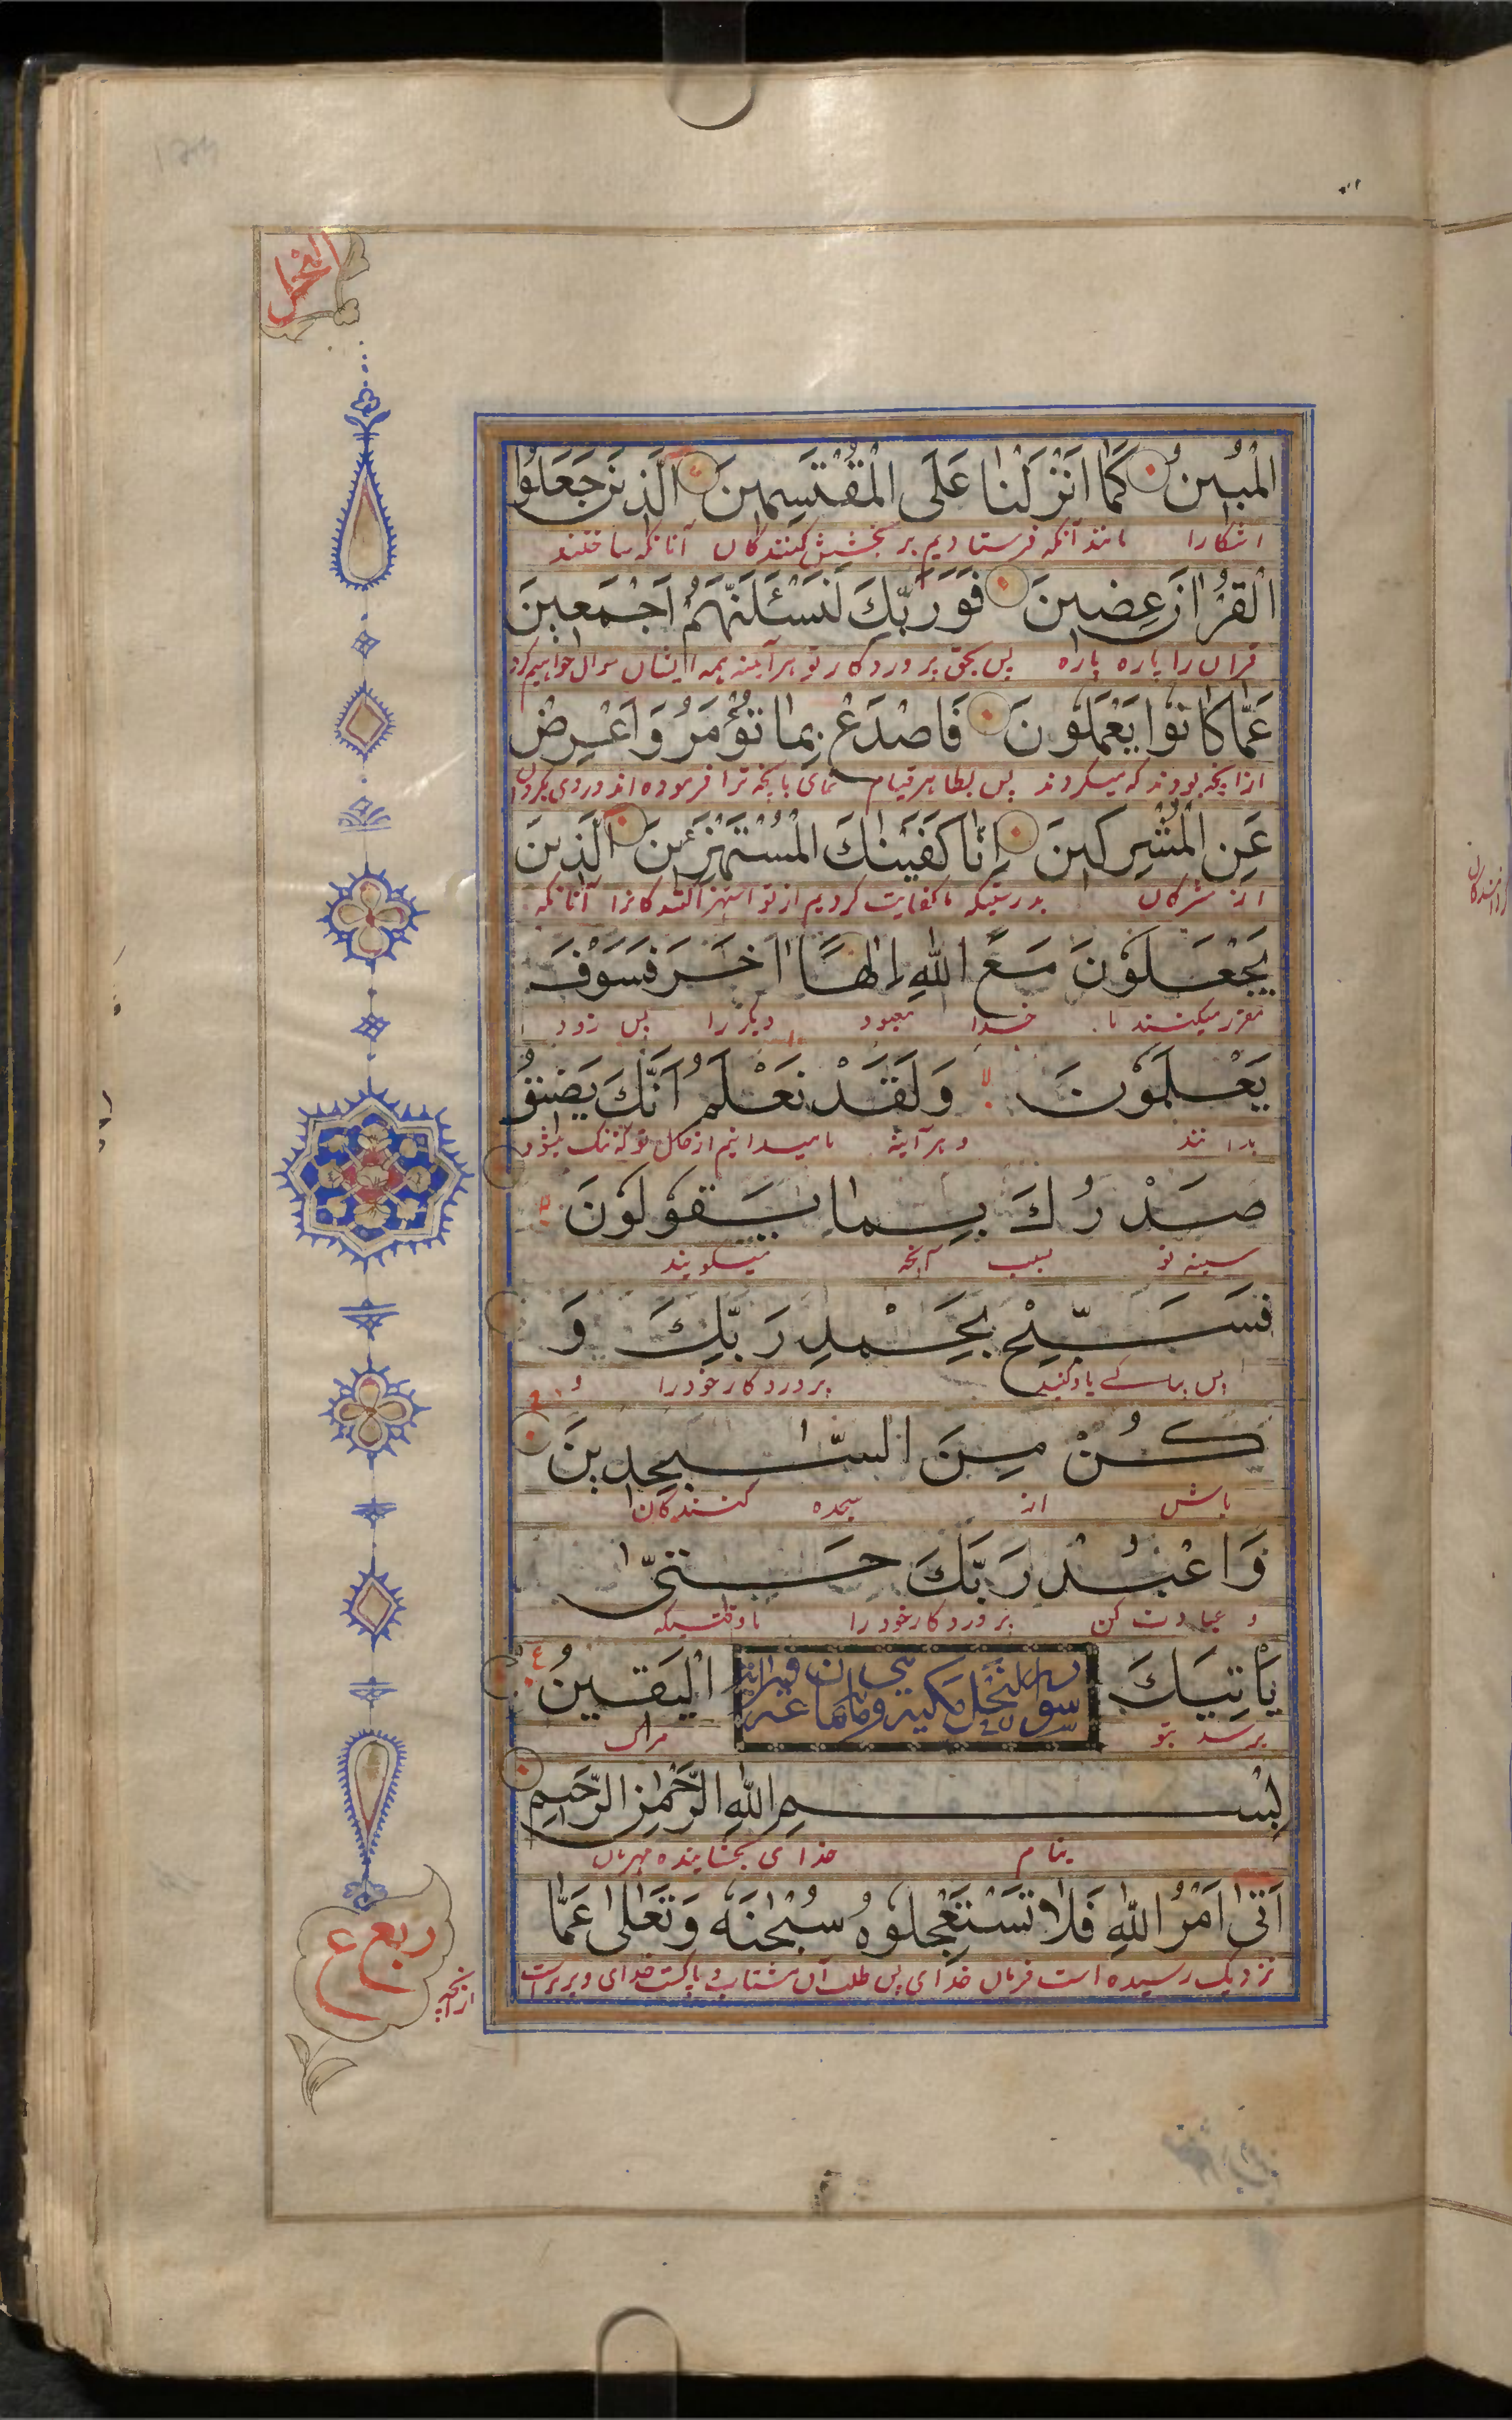 النحل
الْمُبِينُ كَمَا اَنْزَلْنَا عَلَى الْمُقْتَسِمِينَ الَّذِينَ جَعَلُوا
اشکارا مانند آنکه فرستادیم بر بخشش کنندکان آنانکه ساختند
الْقُرْاٰنَ عِضِينَ فَوَرَبِّكَ لَنَسْئَلَنَّهُمْ اَجْمَعِينَ
قرآن را پاره پاره پس بحق پروردکار تو هرآینه همه ایشان سوال خواهیم کرد
عَمَّا كَانُوا يَعْمَلُونَ فَاصْدَعْ بِمَا تُؤْمَرُ وَاَعْرِضْ
ازانچه بودند که میکردند پس بظاهر قیام نمای بانچه ترا فرموده اند و روی بکردان
عَنِ الْمُشْرِكِينَ اِنَّا كَفَيْنَاكَ الْمُسْتَهْزِءِينَ الَّذِينَ
از مشرکان بدرستیکه ما کفایت کردیم از تو استهزا کنندکانرا آنانکه
يَجْعَلُونَ مَعَ اللّٰهِ اِلٰهًا اٰخَرَ فَسَوْفَ
مقرر میکنند با خدا معبود دیکر را پس زود
يَعْلَمُونَ لا وَلَقَدْ نَعْلَمُ اَنَّكَ يَضِيقُ
بدانند و هرآینه ما میدانیم از حال تو که تنک میشود
صَدْرُكَ بِمَا يَقُولُونَ لا
سینه تو بسبب آنچه میکویند
فَسَبِّحْ بِحَمْدِ رَبِّكَ وَ
پس بپاکی یاد کنید پروردکار خود را و
كُنْ مِنَ السَّاجِدِينَ
باش از سجده کنندکان
وَاعْبُدْ رَبَّكَ حَتّٰى
و عبادت کن پروردکار خود را تا وقتیکه
يَاْتِيَكَ الْيَقِينُ ع
سورة النحل مکیة وهی مائة وثمان وعشرون اية
برسد بتو مرک
بِسْمِ اللّٰهِ الرَّحْمٰنِ الرَّحِيمِ
بنام خدای بخشاینده مهربان
اَتٰى اَمْرُ اللّٰهِ فَلَا تَسْتَعْجِلُوهُ سُبْحٰنَهُ وَتَعٰلٰى عَمَّا
نزدیک رسیده است فرمان خدای پس طلب آن مشتاب و پاکست خدای و برتراست
ازانچه
ربع ع